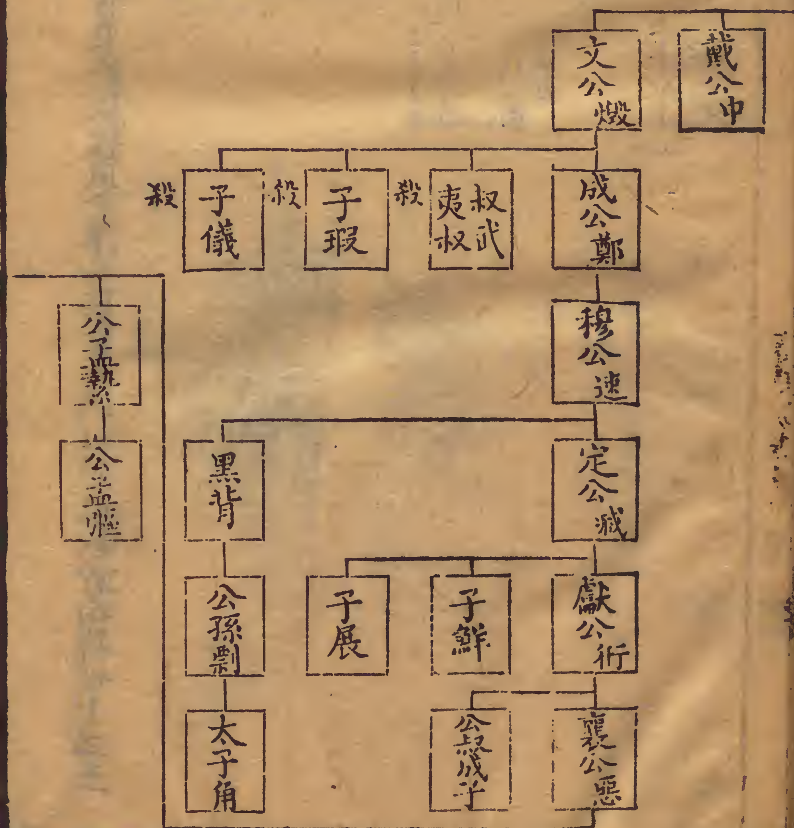 戴公申
文公燬
成公鄭
叔武
夷叔
殺
子瑕
殺
子儀
殺
穆公速
定公臧
黑背
獻公衎
子鮮
子展
公孫剽
襄公惡
公叔成子
太子角
公子縶
公孟彄